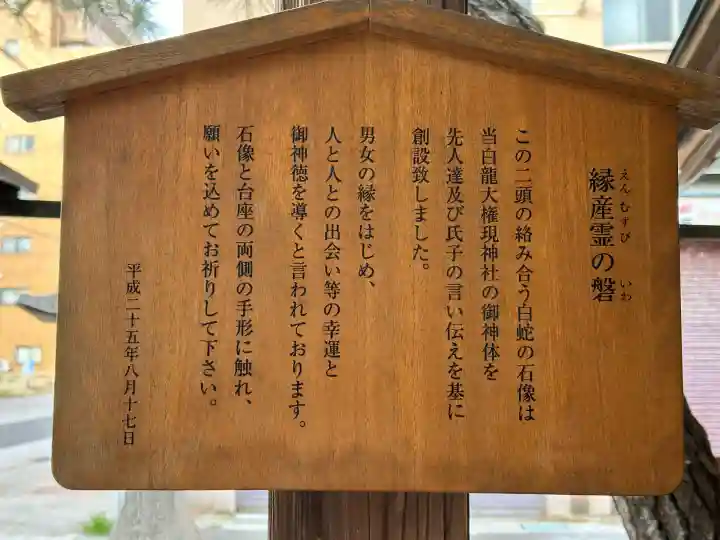 縁産霊の磐
えんむすび
いわ
この二頭の絡み合う白蛇の石像は
当白龍大権現神社の御神体を
先人達及び氏子の言い伝えを基に
創設致しました。
男女の縁をはじめ、
人と人との出会い等の幸運と
御神徳を導くと言われております。
石像と台座の両側の手形に触れ、
願いを込めてお祈りして下さい。
平成二十五年八月十七日